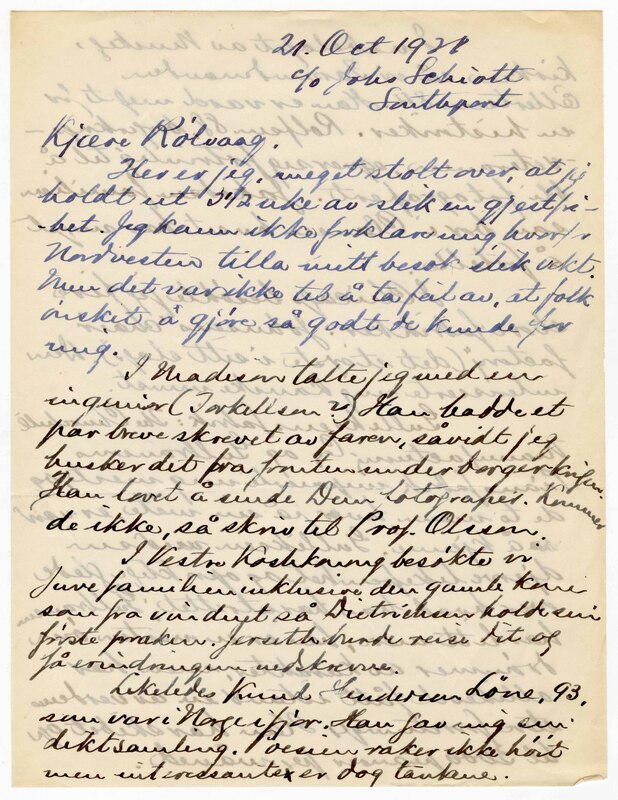 21. Oct 1928
c/o Johs Schiött
Southport
Kjære Rölvaag.
Her er jeg, meget stolt over, at jeg
holdt ut 3 1/2 uke av slik en gjestfri-
-het. Jeg kann ikke forklare mig hvorfor
Nordvesten tilla mitt besök slik vekt.
Men det var ikke til å ta feil av, at folk
önsket å gjöre så godt de kunde for
mig.
I Madison talte jeg med en
ingeniör (Torkelsson?) Han hadde et
par breve skrevet av faren, såvidt jeg
husker det fra fronten under borgerkrigen.
Han lovet å sende Dem fotografier. Kommer
de ikke, så skriv til Prof. Olsson.
I Vestre Koshkonong besökte vi
Juve familien inklusive den gamle kone
som fra vinduet så Dietrichsen holde sin
förste preken. Jerseth burde reise dit og
få erindringen nedskrevne.
Likeledes Knud Henderson Löne, 93,
som var i Norge ifjor. Han gav mig sin
diktsamling. Poesien raker ikke höit
men interessante er dog tankene.